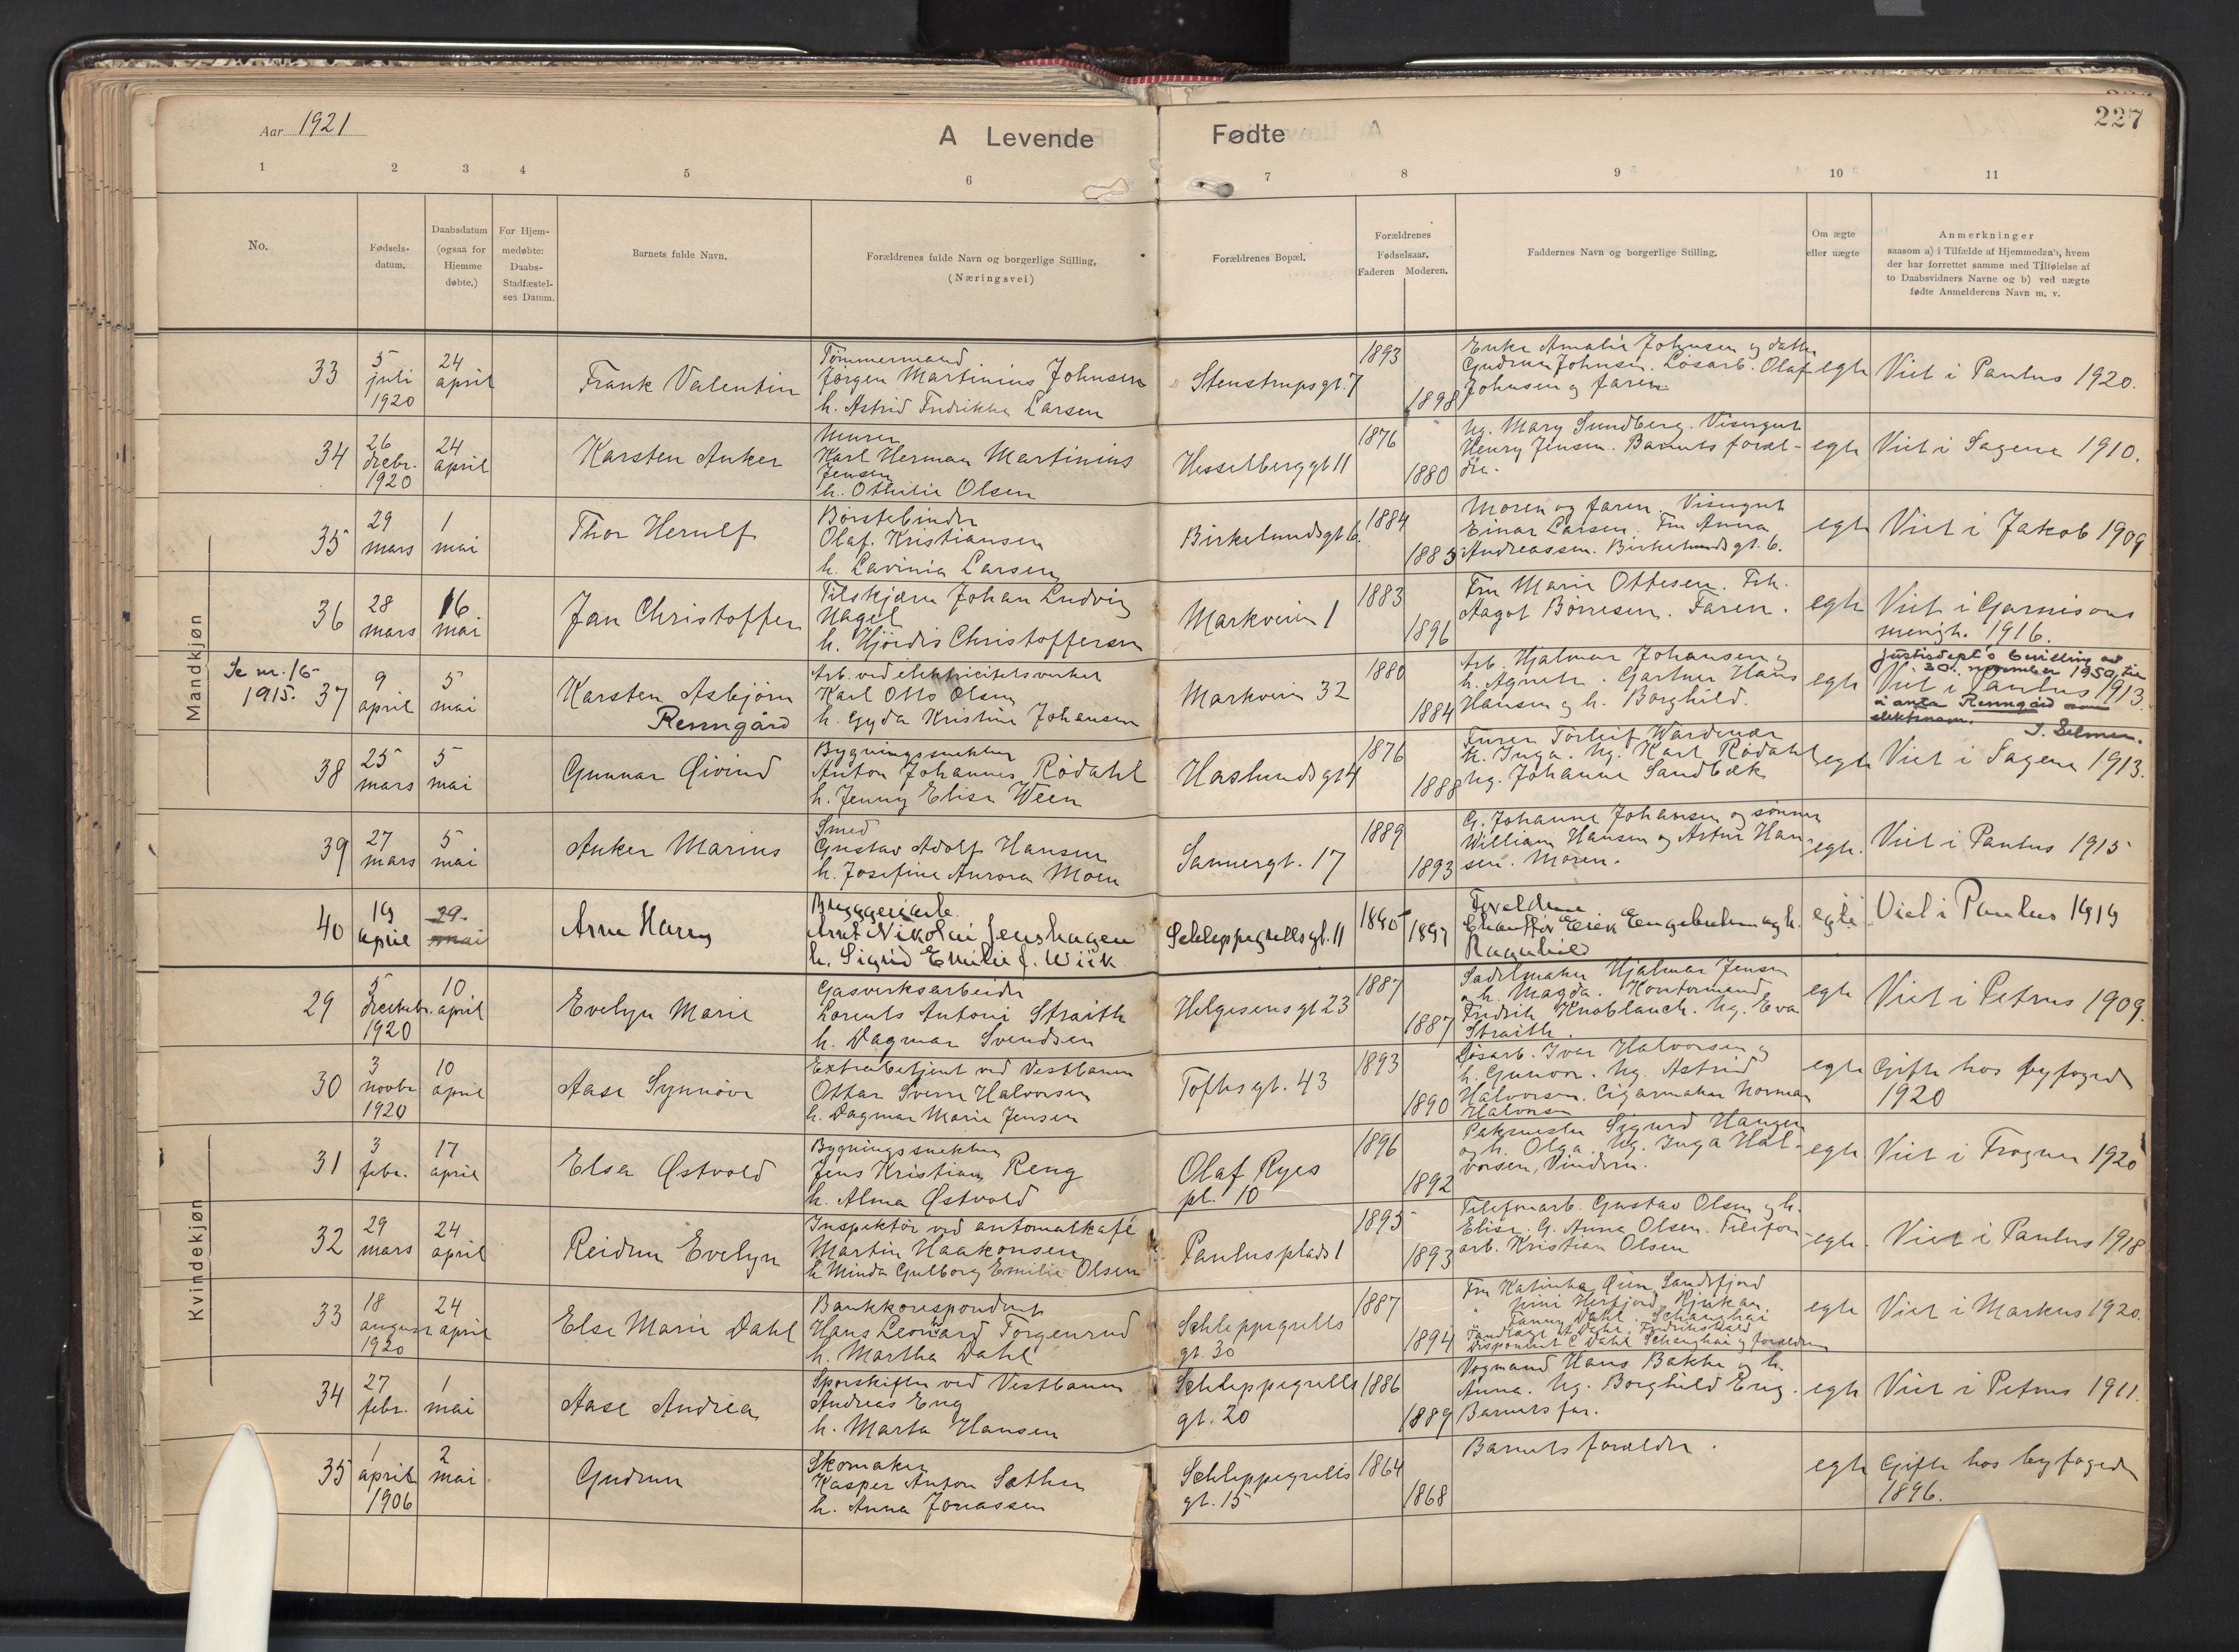 Aar 1921
A Levende Fødte
227
1 2 3 4 5 6 7 8 9 10 11
No.
Fødsels-
datum.
Daabsdatum
(ogsaa for
Hjemme
døbte.)
For Hjem-
medøbte:
Daabs-
Stadfæstel-
ses Datum.
Barnets fulde Navn.
Forældrenes fulde Navn og borgerlige Stilling,
(Næringsvei)
Forældrenes Bopæl.
Forældrenes
Fødselsaar.
Faderen Moderen.
Faddernes Navn og borgerlige Stilling.
Om ægte
eller uægte
Anmerkninger
saasom a) i Tilfælde af Hjemmedaab, hvem
der har forrettet samme med Tilføielse af
to Daabsvidners Navne og b) ved uægte
fødte Anmelderens Navn m. v.
Mandkjøn
33
5
juli
1920
24
april
Frank Valentin
Tømmermand
Jørgen Martinius Johnsen
h. Astrid Fredrikke Larsen
Stenstrupsgt. 7
1893
1898
Enke Amalie Johnsen og datter
Gudrun Johnsen. Løsarb. Olaf
Johnsen og faren.
egte
Viet i Paulus 1920.
34
26
decbr.
1920
24
april
Karsten Anker
Murer
Karl Herman Martinius
Jensen
h. Othilie Olsen
Hesselberggt 11
1876
1880
Ug. Mary Sundberg. Visergut
Henry Jensen. Barnets foræl-
dre.
egte
Viet i Sagene 1910.
35
29
mars
1
mai
Thor Herulf
Børstebinder
Olaf Kristiansen
h. Lavinia Larsen
Birkelundsgt 6.
1884
1883
Moren og faren. Visergut
Einar Larsen. Fru Anna
Andreassen. Birkelundsgt. 6.
egte
Viet i Jakob 1909
36
28
mars
16
mai
Jan Christoffer
Tilskjærer Johan Ludvig
Nagel
h. Hjørdis Christoffersen
Markveien 1
1883
1896
Fru Marie Ottesen. Frk.
Aagot Børresen. Faren.
egte
Viet i Garnisons
menigh. 1916.
Se nr. 16
1915.
37
9
april
5
mai
Karsten Asbjørn
Renngård
Arb. ved elektricitetsverket
Karl Otto Olsen
h. Gyda Kristine Johansen
Markveien 32
1880
1884
Arb. Hjalmar Johansen og
h. Agnete. Gartner Hans
Hansen og h. Borghild.
egte
Justisdept's bevilling av
30. november 1950 til
Viet i Paulus 1913.
å anta Renngård som
slektsnavn.
S. Selmer.
38
25
mars
5
mai
Gunnar Øivind
Bygningssnekker
Anton Johannes Rødahl
h. Jenny Elise Ween
Haslundsgt 4
1876
1888
Furer Torleif Wardenær
h. Inga. Ug. Karl Rødahl
Ug. Johanne Sandbæk
egte
Viet i Sagene 1913.
39
27
mars
5
mai
Anker Marius
Smed
Gustav Adolf Hansen
h. Josefine Aurora Moen
Sannergt. 17
1889
1893
G. Johanne Johansen og sønner
William Hansen og Artur Han-
sen. Moren.
egte.
Viet i Paulus 1915
40
19
april
29
mai
Arne Harry
Bryggeriarb.
Arnt Nikolai Jenshagen
h. Sigrid Emilie f. Wiik
Schleppegrellsgt. 11
1897
Foreldrene
Chauffør Erik Engebretsen og h.
Ragnhild
egte
Viet i Paulus 1919
Kvindekjøn
29
5
decbr.
1920
10
april
Evelyn Marie
Gasverksarbeider
Lorents Antoni Straith
h. Dagmar Svendsen
Helgesensgt 23
1887
1887
Sadelmaker Hjalmar Jensen
og h. Magda. Kontormand
Fredrik Knoblauch. Ug. Eva
Straith.
egte
Viet i Petrus 1909.
30
3
novbr
1920
10
april
Aase Synnøve
Extrabetjent ved Vestbanen
Ottar Sverre Halvorsen
h. Dagmar Marie Jensen
Toftesgt. 43
1893
1890
Løsarb. Ivar Halvorsen og
h. Gunvor. Ug. Astrid
Halvorsen. Cigarmaker Norman
Halvorsen
egte
Gifte hos byfogden
1920
31
3
febr.
17
april
Elsa Østvold
Bygningssnekker
Jens Kristian Reng
h. Alma Østvold
Olaf Ryes
pl. 10
1896
1892
Pakmester Sigurd Haugen
og h. Olga. Ug. Inga Hal-
vorsen, Vindern.
egte.
Viet i Frogner 1920
32
29
mars
24
april
Reidun Evelyn
Inspektør ved automatkafé
Martin Haakonsen
h Minda Gulborg Emilie Olsen
Paulusplads 1
1895
1893
Telefonarb. Gustav Olsen og h.
Elise. G. Anna Olsen. Telefon-
arb. Kristian Olsen
egte.
Viet i Paulus 1918
33
18
august
1920
24
april
Else Marie Dahl
Bankkorrespondent
Hans Leonhard Torgenrud
h. Martha Dahl
Schleppegrells
gt. 30
1887
1894
Fru Katinka Øien Sandefjord
" Herfjord, Rjukan.
" Fanny Dahl. Schanghai
Tandlæge A Dahl. Fredrikshald
Disponent C Dahl Schanghai og forældrene
egte
Viet i Markus 1920.
34
27
febr.
1
mai
Aase Andrea
Sporskifter ved Vestbanen
Andreas Eng
h. Marta Hansen
Schleppegrells
gt. 20
1886
1889
Vognmand Hans Bakke og h.
Anna. Ug. Borghild Eng.
Barnets far.
egte
Viet i Petrus 1911.
35
1
april
1906
2
mai
Gudrun
Skomaker
Kasper Anton Sæther
h. Anna Jonassen
Schleppegrells
gt. 15
1864
1868
Barnets forældre.
egte
Gifte hos byfogden
1896.